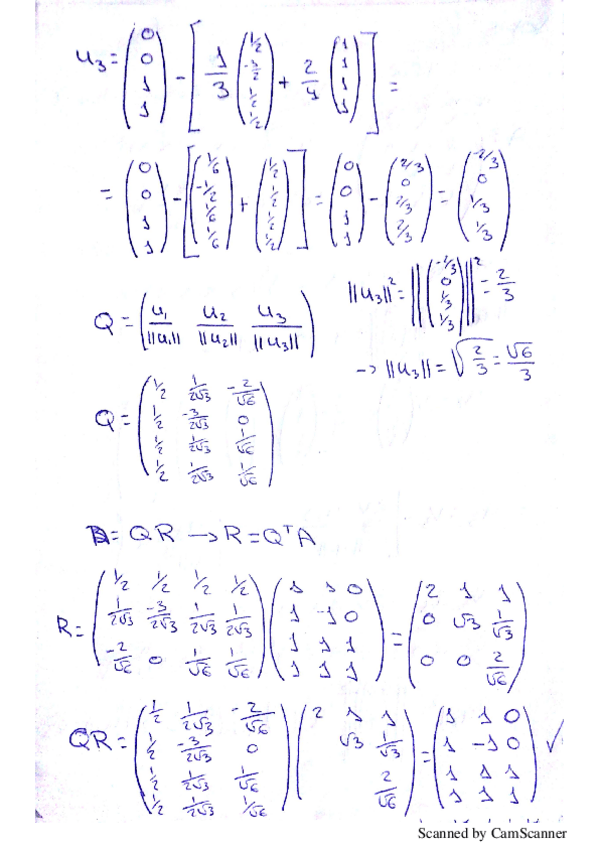 u₃ = (0; 0; 1; 1) - [ 1/3 (1/2; -3/2; 1/2; 1/2) + 2/4 (1; 1; 1; 1) ] =
= (0; 0; 1; 1) - [ (1/6; -1/2; 1/6; 1/6) + (1/2; 1/2; 1/2; 1/2) ] = (0; 0; 1; 1) - (2/3; 0; 2/3; 2/3) = (-2/3; 0; 1/3; 1/3)
Q = ( u₁/||u₁|| u₂/||u₂|| u₃/||u₃|| )
||u₃||² = ||(-2/3; 0; 1/3; 1/3)||² = 2/3
-> ||u₃|| = √(2/3) = √6/3
Q = ( 1/2 1/2√3 -2/√6; 1/2 -3/2√3 0; 1/2 1/2√3 1/√6; 1/2 1/2√3 1/√6 )
= QR -> R = QᵀA
R = ( 1/2 1/2 1/2 1/2; 1/2√3 -3/2√3 1/2√3 1/2√3; -2/√6 0 1/√6 1/√6 ) ( 1 1 0; 1 -1 0; 1 1 1; 1 1 1 ) = ( 2 1 1; 0 √3 1/√3; 0 0 2/√6 )
QR = ( 1/2 1/2√3 -2/√6; 1/2 -3/2√3 0; 1/2 1/2√3 1/√6; 1/2 1/2√3 1/√6 ) ( 2 1 1; √3 1/√3; 2/√6 ) = ( 1 1 0; 1 -1 0; 1 1 1; 1 1 1 ) ✓
Scanned by CamScanner